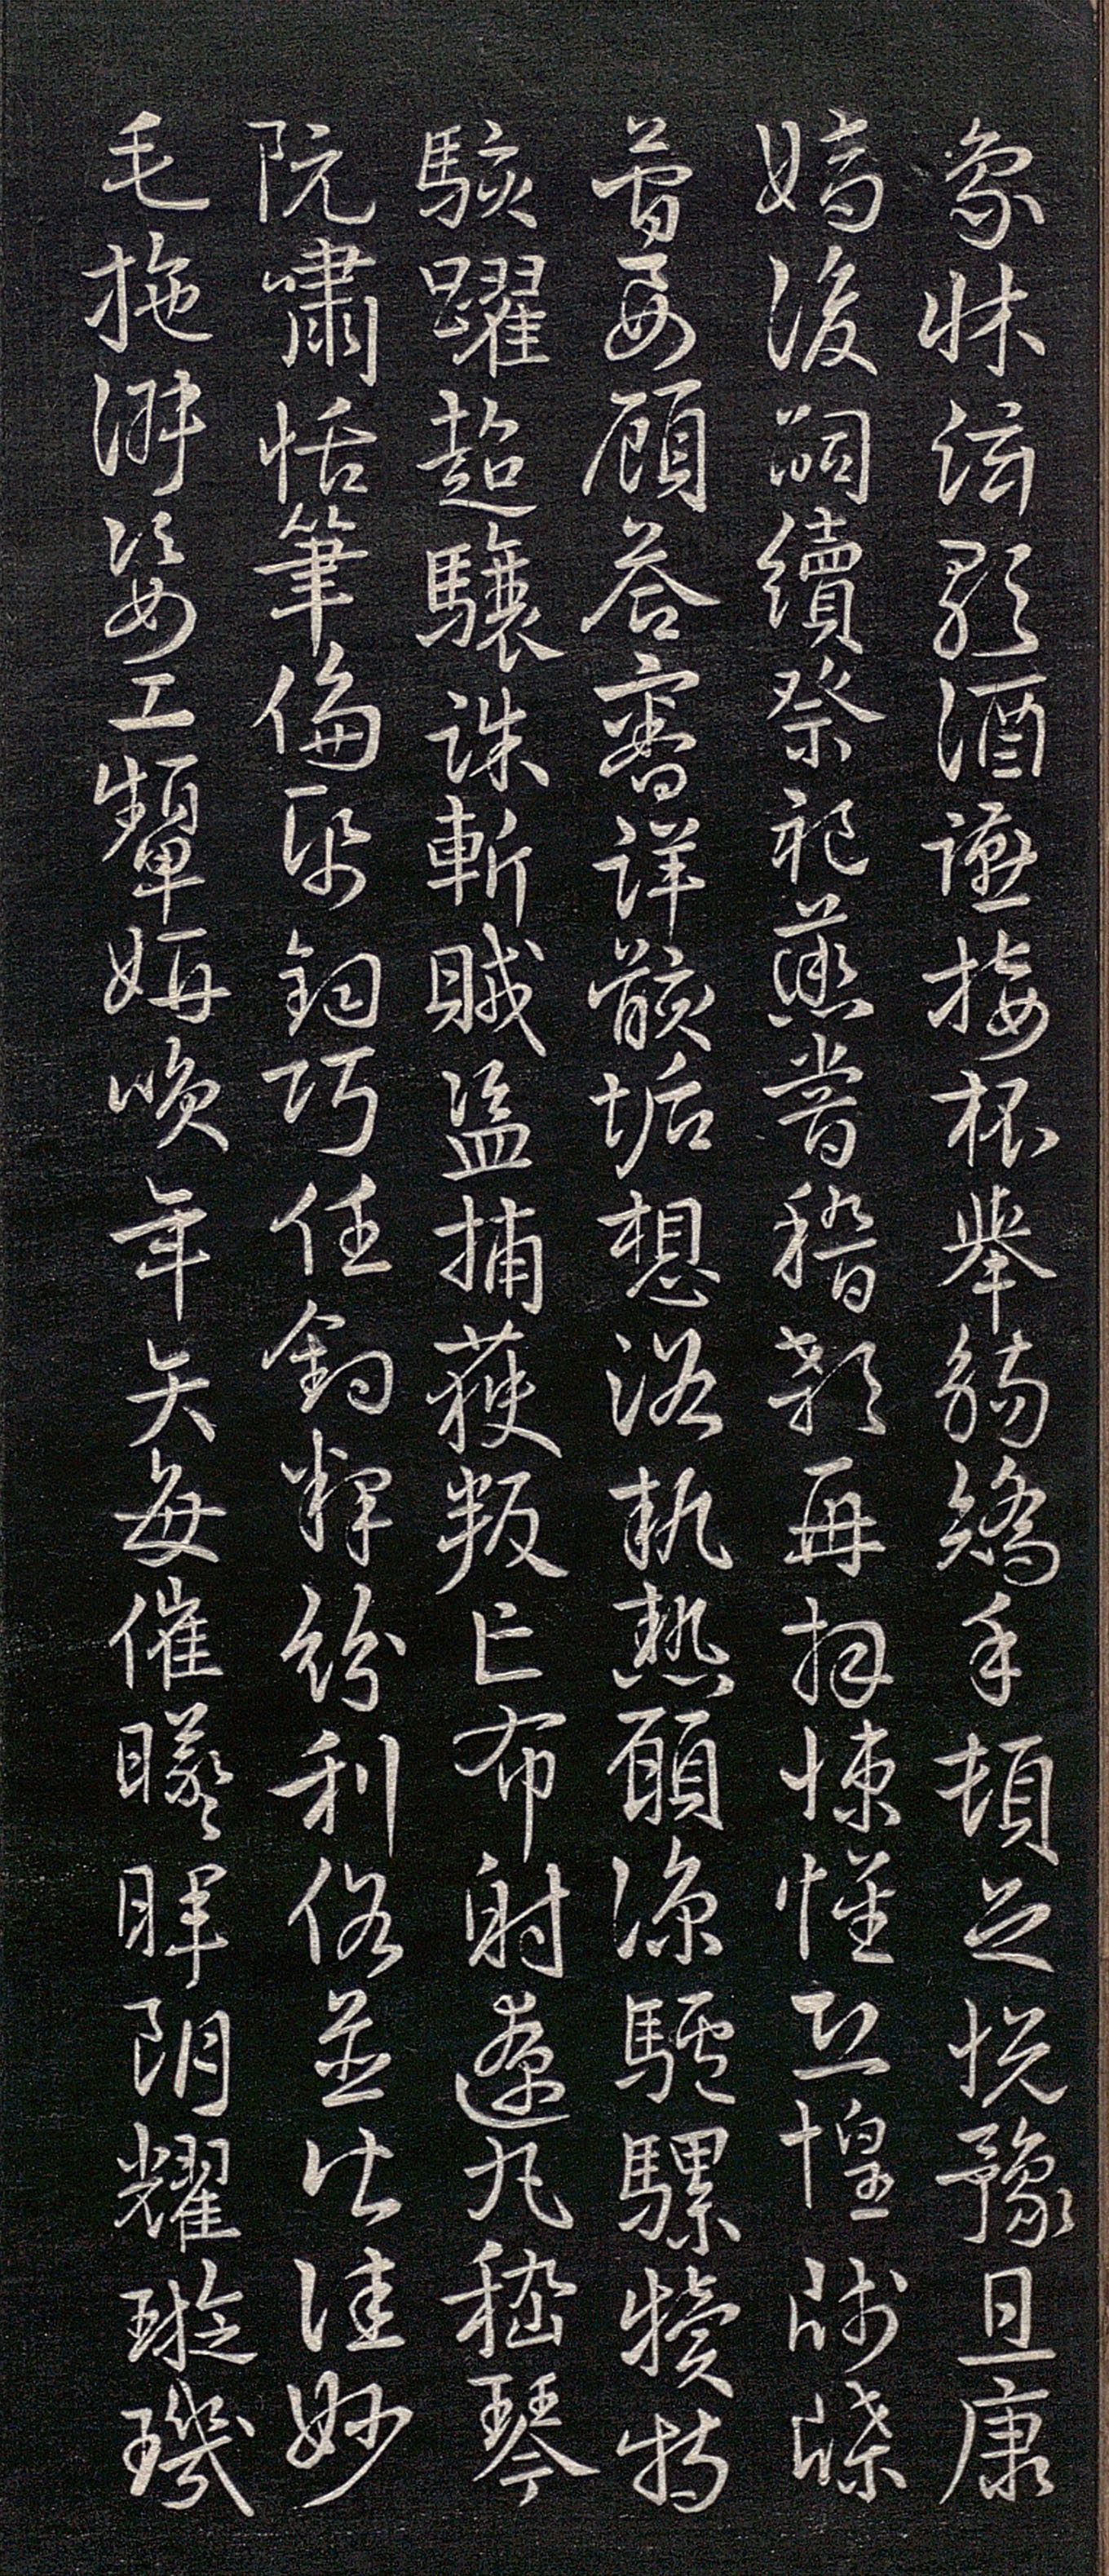 象牀絃歌酒讌接杯舉觴矯手頓足悅豫且康
嫡後嗣續祭祀蒸嘗稽顙再拜悚懼恐惶牋牒
簡要顧答審詳骸垢想浴執熱願涼驢騾犢特
駭躍超驤誅斬賊盜捕獲叛亡布射遼丸嵇琴
阮嘯恬筆倫紙鈞巧任釣釋紛利俗並皆佳妙
毛施淑姿工顰妍咲年矢每催曦暉朗耀璇璣